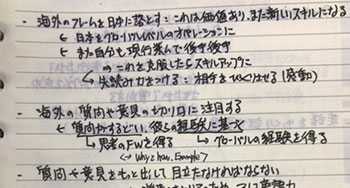 - 海外のフレームを日本に落とす：これは価値あり、また新しいスキルになる
← 日本をグローバルレベルのオペレーションに
← また自分も現行業んで後手後手
→ これを克服したらスキルアップに
- 先読み力をつける：相手をびっくりさせる(発動)
- 海外の質問や意見の切り口に注目する
← 質問がするどい、彼らの経験に基く
→ 思考のFWを得る → グローバルの経験を得る
↔ Why? how, Example?
- 質問や意見をもっと出して目立たなければならない